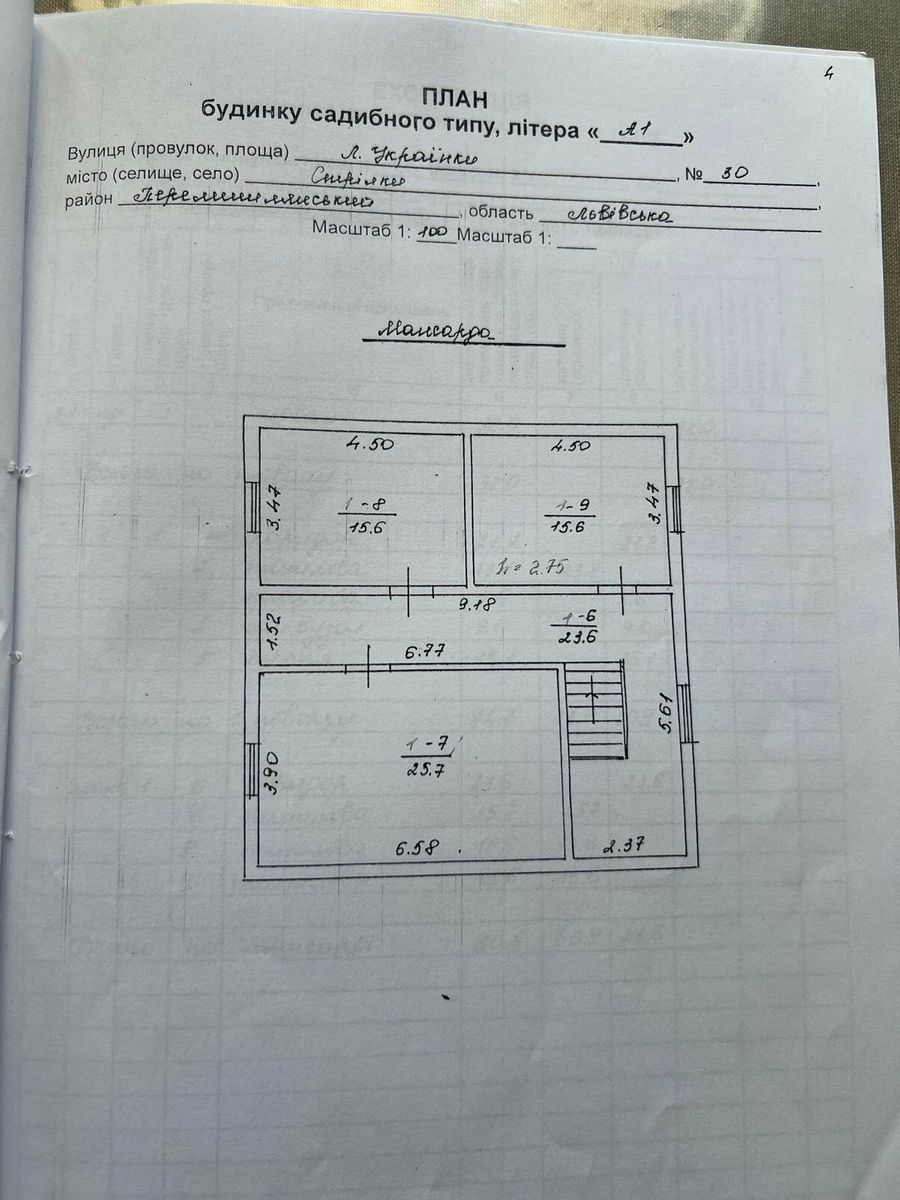 4
ПЛАН
будинку садибного типу, літера « А1 »
Вулиця (провулок, площа) Л. Українки, № 30,
місто (селище, село)
район Перемишлянський, область Львівська
Масштаб 1: 100 Масштаб 1:
Мансарда
4.50
4.50
3.47
1-8
15.6
1-9
15.6
3.47
h = 2.75
9.18
1.52
1-6
23.6
6.77
5.61
3.90
1-7
25.7
6.58
2.37